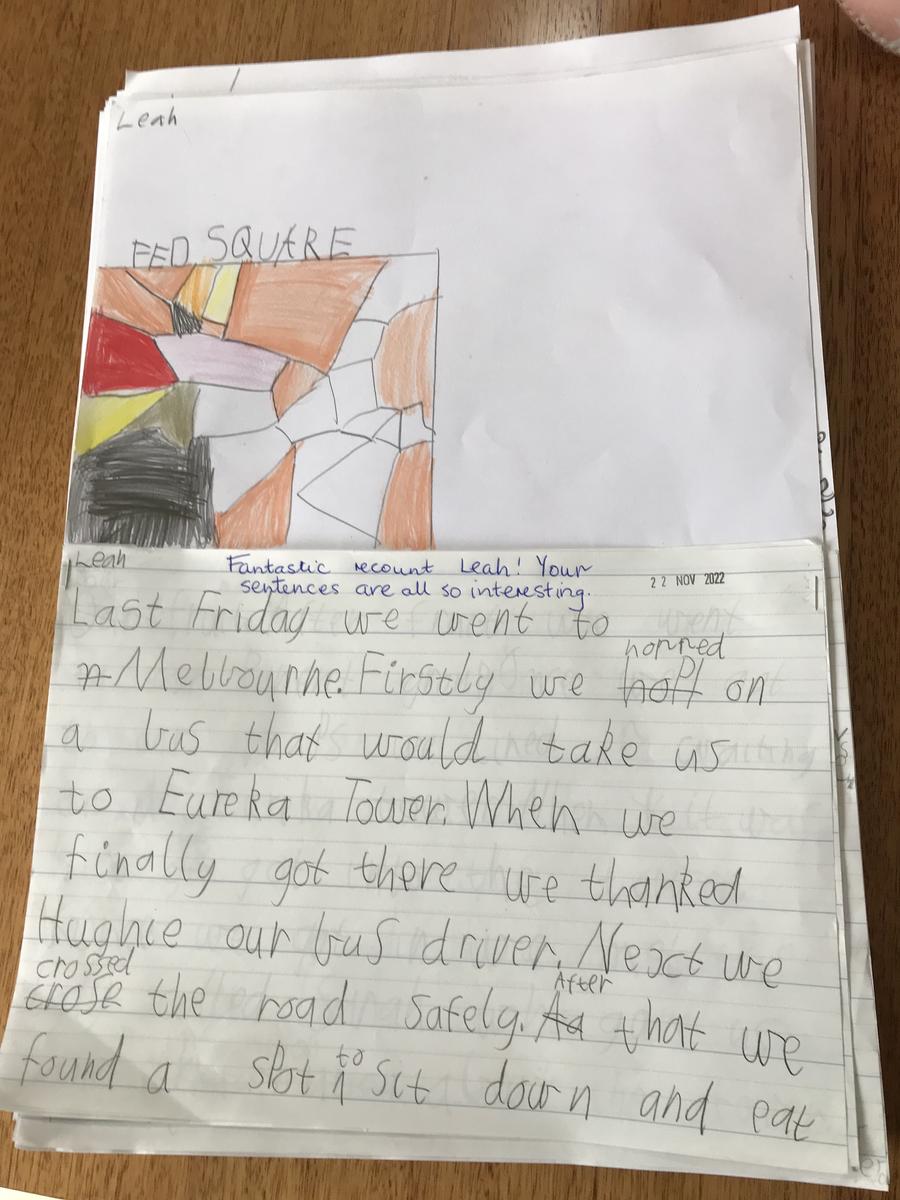 Leah
FED SQUARE
Leah
Fantastic recount Leah! Your
sentences are all so interesting.
22 NOV 2022
Last Friday we went to
hopped
Melbourne. Firstly we hoft on
a bus that would take us
to Eureka Tower. When we
finally got there we thanked
Hughie our bus driver. Next we
crossed
crose the road safely. After
Aa that we
to
found a spot sit down and eat